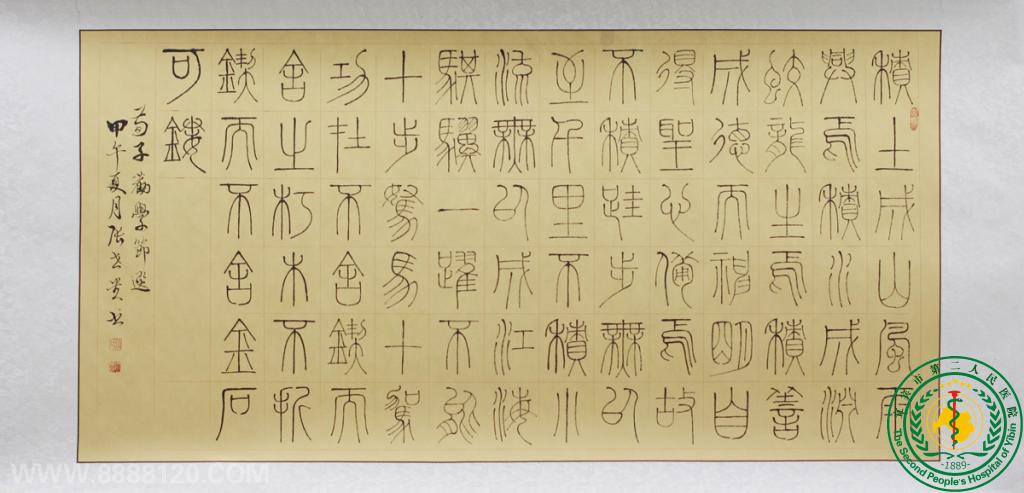 積土成山風雨
興焉積水成淵
蛟龍生焉積善
成德而神明自
得聖心備焉故
不積跬步無以
至千里不積小
流無以成江海
騏驥一躍不能
十步駑馬十駕
功在不舍鍥而
舍之朽木不折
鍥而不舍金石
可鏤
荀子勸學節選
甲午夏月张书
宜宾市第二人民医院
-1889-
The Second People's Hospital of Yibin
WWW.8888120.COM